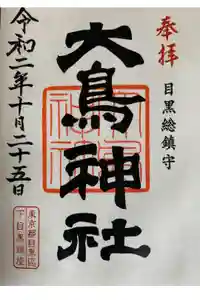 奉拝
目黒総鎮守
大鳥神社
令和二年十月二十五日
東京都目黒區
下目黒鎮座